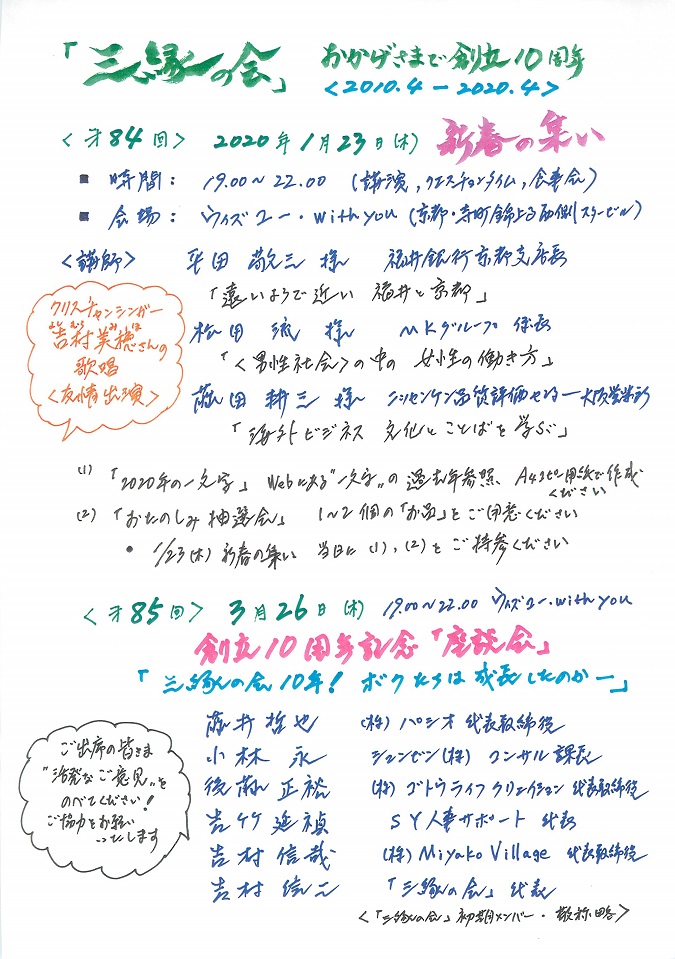 「三縁の会」 おかげさまで創立10周年
<2010.4-2020.4>
<第84回> 2020年1月23日(木) 新春の集い
■ 時間: 19.00~22.00 (講演,クエスチョンタイム,食事会)
■ 会場: ウィズユー・with you (京都・寺町錦上る西側スタービル)
<講師> 平田 敬三 様 福井銀行京都支店長
「遠いようで近い 福井と京都」
松田 様 MKグループ 係長
「<男性社会>の中の 女性の働き方」
藤田 耕三 様 ニッセンケン品質評価センター大阪営業所
「海外ビジネス 文化とことばを学ぶ」
クリスチャンシンガー
吉村美穂さんの
よしむら みほ
歌唱
<友情出演>
(1) 「2020年の一文字」 Webによる"一文字"の過去年参照、A4コピー用紙で作成
ください
(2) 「おたのしみ抽選会」 1~2個の「お品」をご用意ください
● 1/23(木)新春の集い 当日に(1),(2)をご持参ください
<第85回> 3月26日(木) 19.00~22.00 ウィズユー・with you
創立10周年記念「座談会」
「三縁の会10年!ボクたちは成長したのかー」
藤井哲也 (株)パシオ 代表取締役
小林 永 シュンゼン(株) コンサル課長
後藤正裕 (株)ゴトウライフクリエイション 代表取締役
吉竹延禎 SY人事サポート 代表
吉村信哉 (株)Miyako Village 代表取締役
吉村 二 「三縁の会」代表
<「三縁の会」初期メンバー・敬称略>
ご出席の皆さま
"活発なご意見"を
のべてください!
ご協力をお願い
いたします